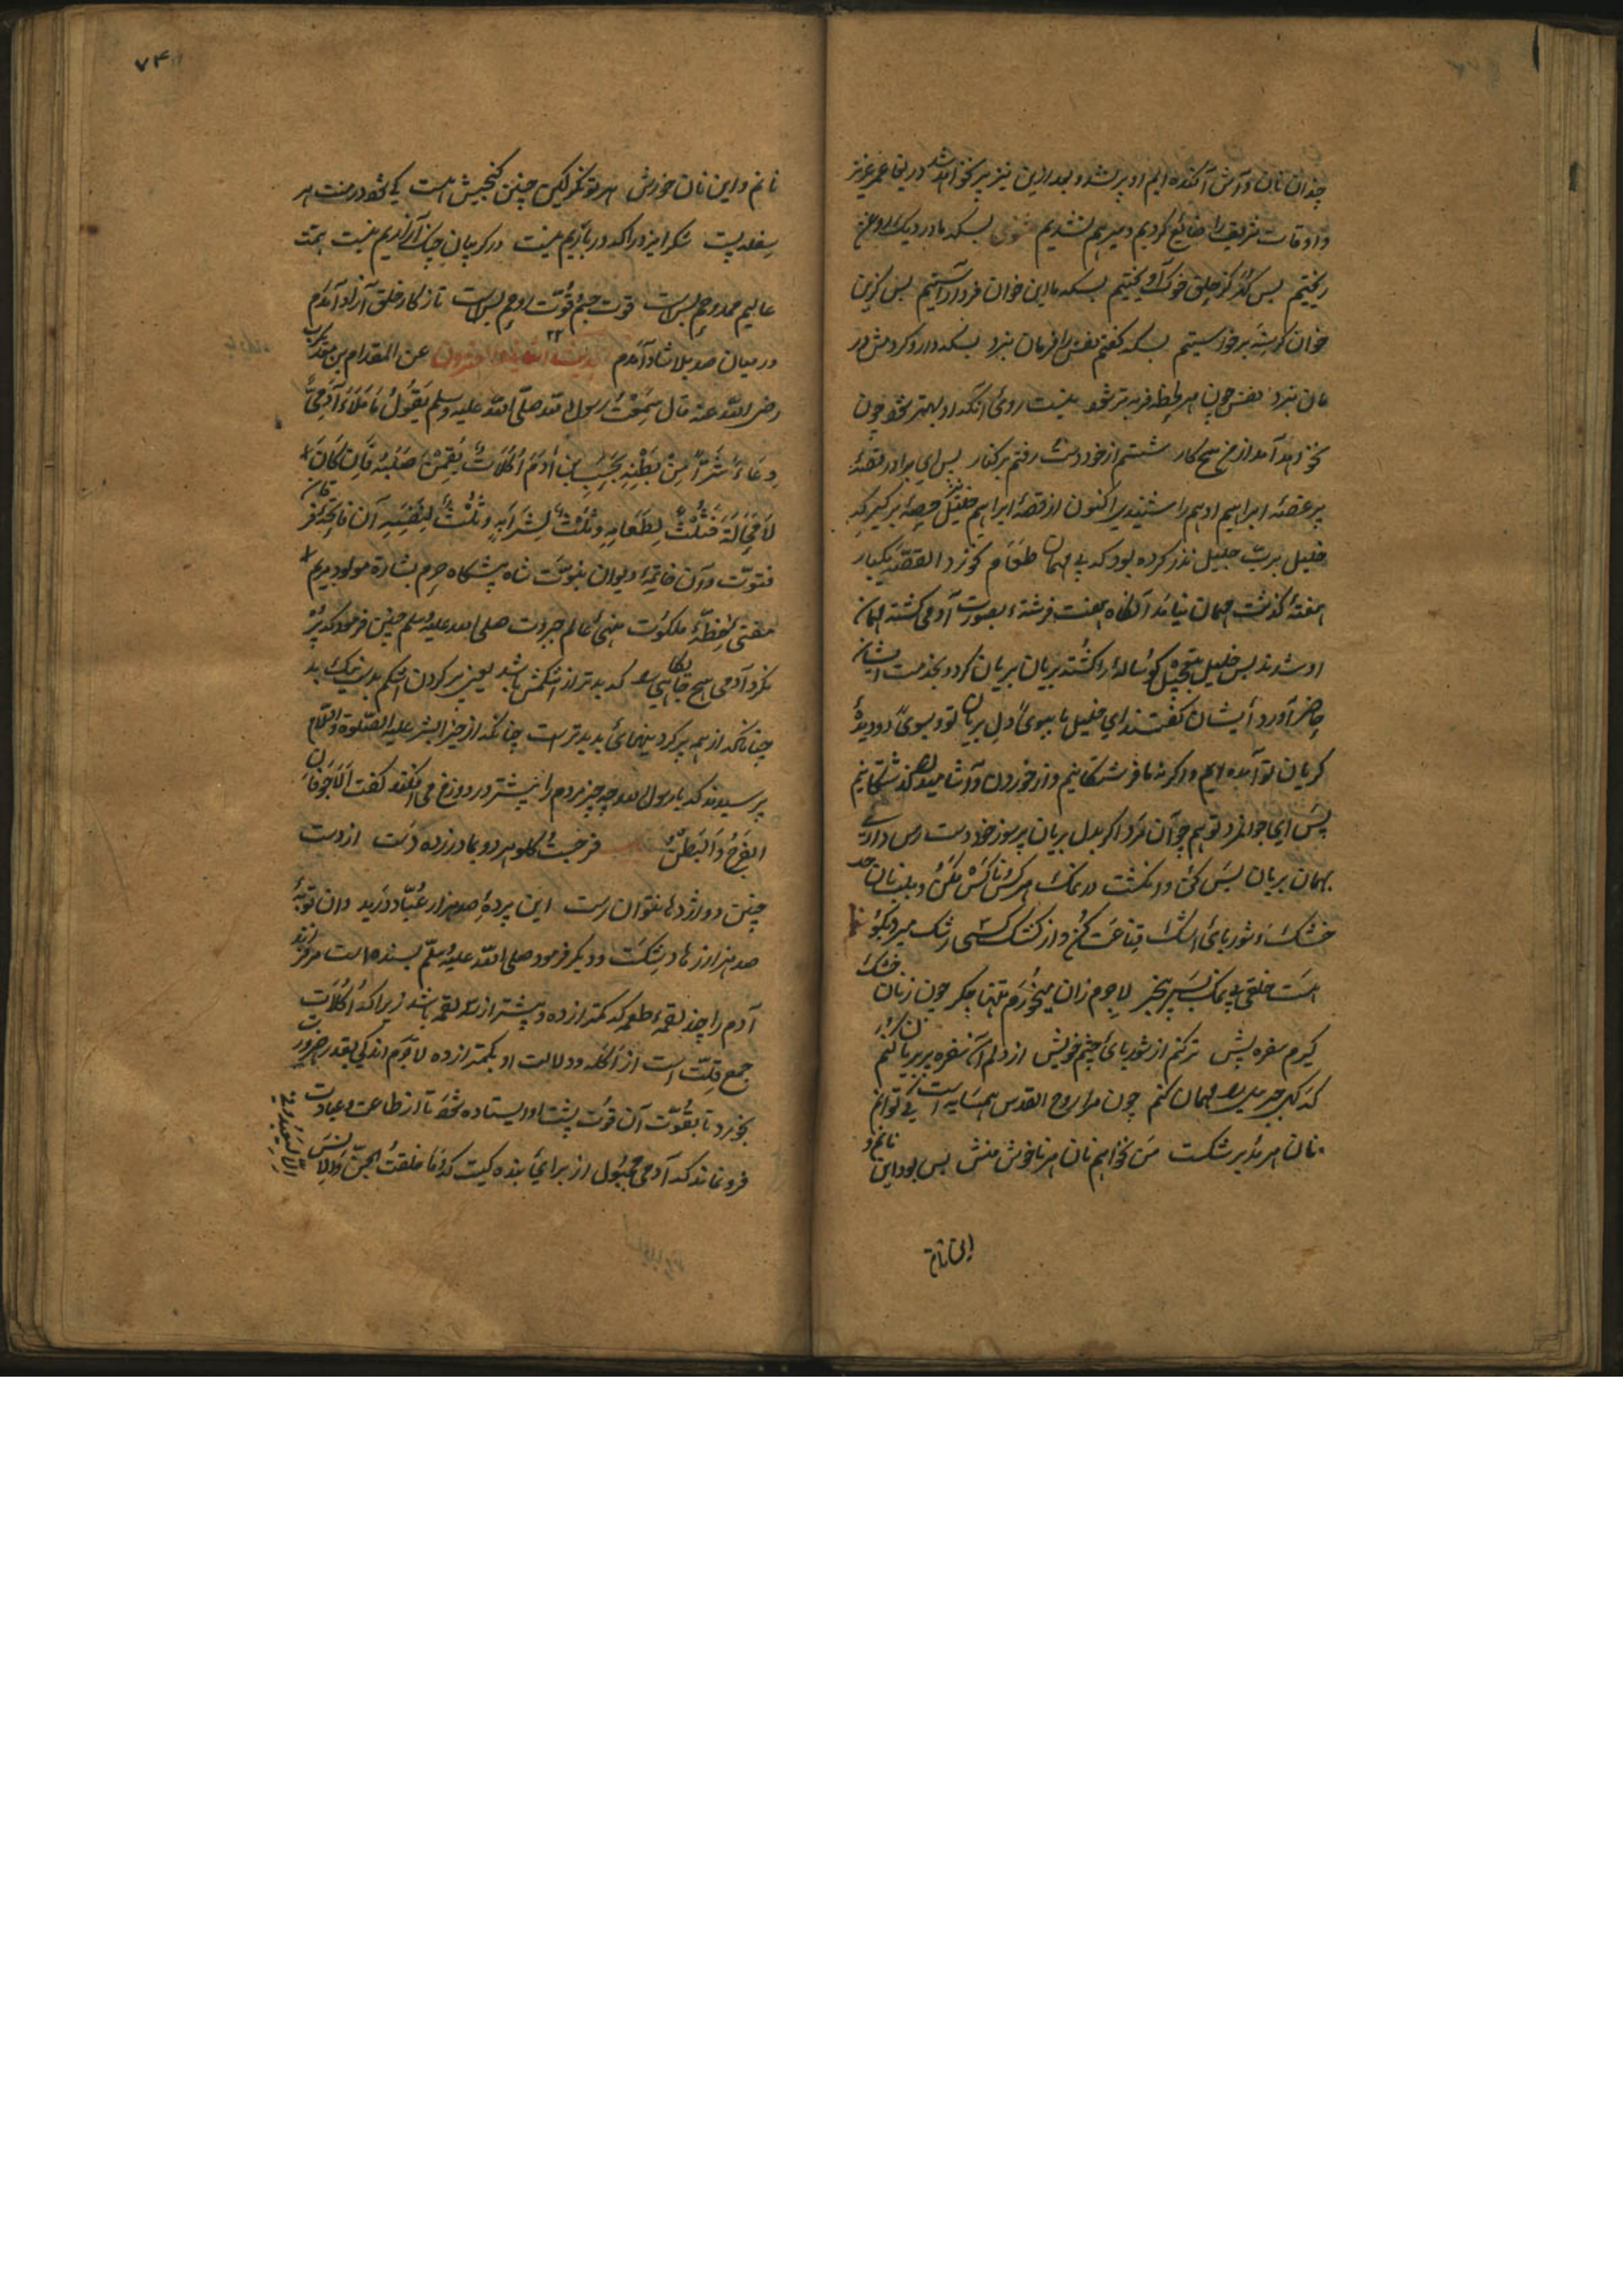 چندان نان و آش آکنده ایم او پر نشد و بعد ازین نیز پر نخواهد شد دریغا عمر عزیز
و اوقات شریف را ضائع کردیم و سیر هم نشدیم مثنوی بسکه ما در دیک روغن
ریختیم بس کز حلق خوک آویختیم بسکه ما این خوان فرو آراستیم بس کزین
خوان کرسنه برخواستیم بسکه کفتم نفس را فرمان نبرد بسکه دارو کردمش در
مان نبرد نفس چون هر لحظه فربه تر شود نیست روی آنکه او بهتر شود چون
نخواهد آمد از من هیچ کار شستم از خود دست رفتم بر کنار پس ای برادر قصهٔ
پر غصهٔ ابراهیم ادهم را شنیدی اکنون از قصهٔ ابراهیم خلیل نیز حصهٔ برکیر که
خلیل برب جلیل نذر کرده بود که بی مهمان طعام نخورد القصه یکبار
هفتهٔ کذشت مهمان نیامد آنکاه هفت فرشته بصورت آدمی کشته مهمان
او شدند پس خلیل بتعجیل کوسالهٔ را کشته بریان بریان کرد و بخدمت ایشان
حاضر آورد ایشان کفتند ای خلیل ما ببوی دل بریان تو و بسوی دو دیدهٔ
کریان تو آمده ایم و اکرنه ما فرشتکانیم و از خوردن و آشامیدن کذشتکانیم
پس ای جوانمرد تو هم چو آن مرد اکر بدل بریان پر سوز خود دست رس داری
بهمان بریان بس کن و انکشت در نمک هر کس و ناکس مکن و بیک نان
خشک و شوربای اشک قناعت کن و از کشک کسی رشک مبر و بکو
هست خلقی بی نمک بس بیخبر لاجرم زان میخورم تنها جکر چون ز نان خشک
کیرم سفره پیش تر کنم از شوربای چشم خویش از دلم آن سفره پر بریان کنم
که کهی جبریل را مهمان کنم چون مرا روح القدس همسایه است کی توانم
نان هر مدبر شکست من نخواهم نان هر ناخوش منش بس بود این نانم و
این نان
۷۴
نانم و این نان خورش هر توانکر کین چنین کنجیش هست کی شود در منت هر
سفله پست شکر ایزد را که درباریم نیست در کریبان چنک آزاریم نیست همت
عالیم ممدوحم بس است قوت جسم و قوت روحم بس است تا ز کار خلق آزاد آمدم
در میان صد بلا شاد آمدم عن المقدام بن معدیکرب
رضی الله عنه قال سمعت رسول الله صلی الله علیه وسلم یقول ما ملاء آدمی
وعاء شرا من بطنه بحسب بن آدم اکلات یقمن صلبه فان کان
لا محالة فثلث لطعامه وثلث لشرابه وثلث لنفسه آن فاتحهٔ
فتوت و آن خاتمهٔ دیوان نبوت شاه پیشکاه حرم بشارة مولود مریم
مفتی خطهٔ ملکوت منهی عالم جبروت صلی الله علیه وسلم چنین فرمود که پر
نکرد آدمی هیچ جایکاهی که بدتر از شکمش باشد یعنی پر کردن شکم
چنانکه از همه پر کردنیهای بد بدتر است چنانکه از خیر البشر علیه الصلوة والسلام
پرسیدند که یا رسول الله چه چیز مردم را بیشتر در دوزخ می افکند کفت الاجوفان
الفرج والبطن فرجت کلو هر دو بمادر زده دست از دست
چنین دو اژدها نتوان رست این پردهٔ صد هزار عباد درید وان توبهٔ
صد هزار زهاد بشکست و دیکر فرمود صلی الله علیه وسلم بسنده است مر فرزند
آدم را چند لقمه طعمه که کمتر از ده و بیشتر از سه لقمه باشد زیرا که اکلات
جمع قلت است از اکله و دلالت او بکمتر از ده لاجرم اندکی بقدر ضرورت
بخورد تا بقوت آن قوت پشت او ایستاده شود تا از طاعت و عبادت
فرو نماند که آدمی مجبول از برای بنده کیست که وما خلقت الجن والانس
الا لیعبدون